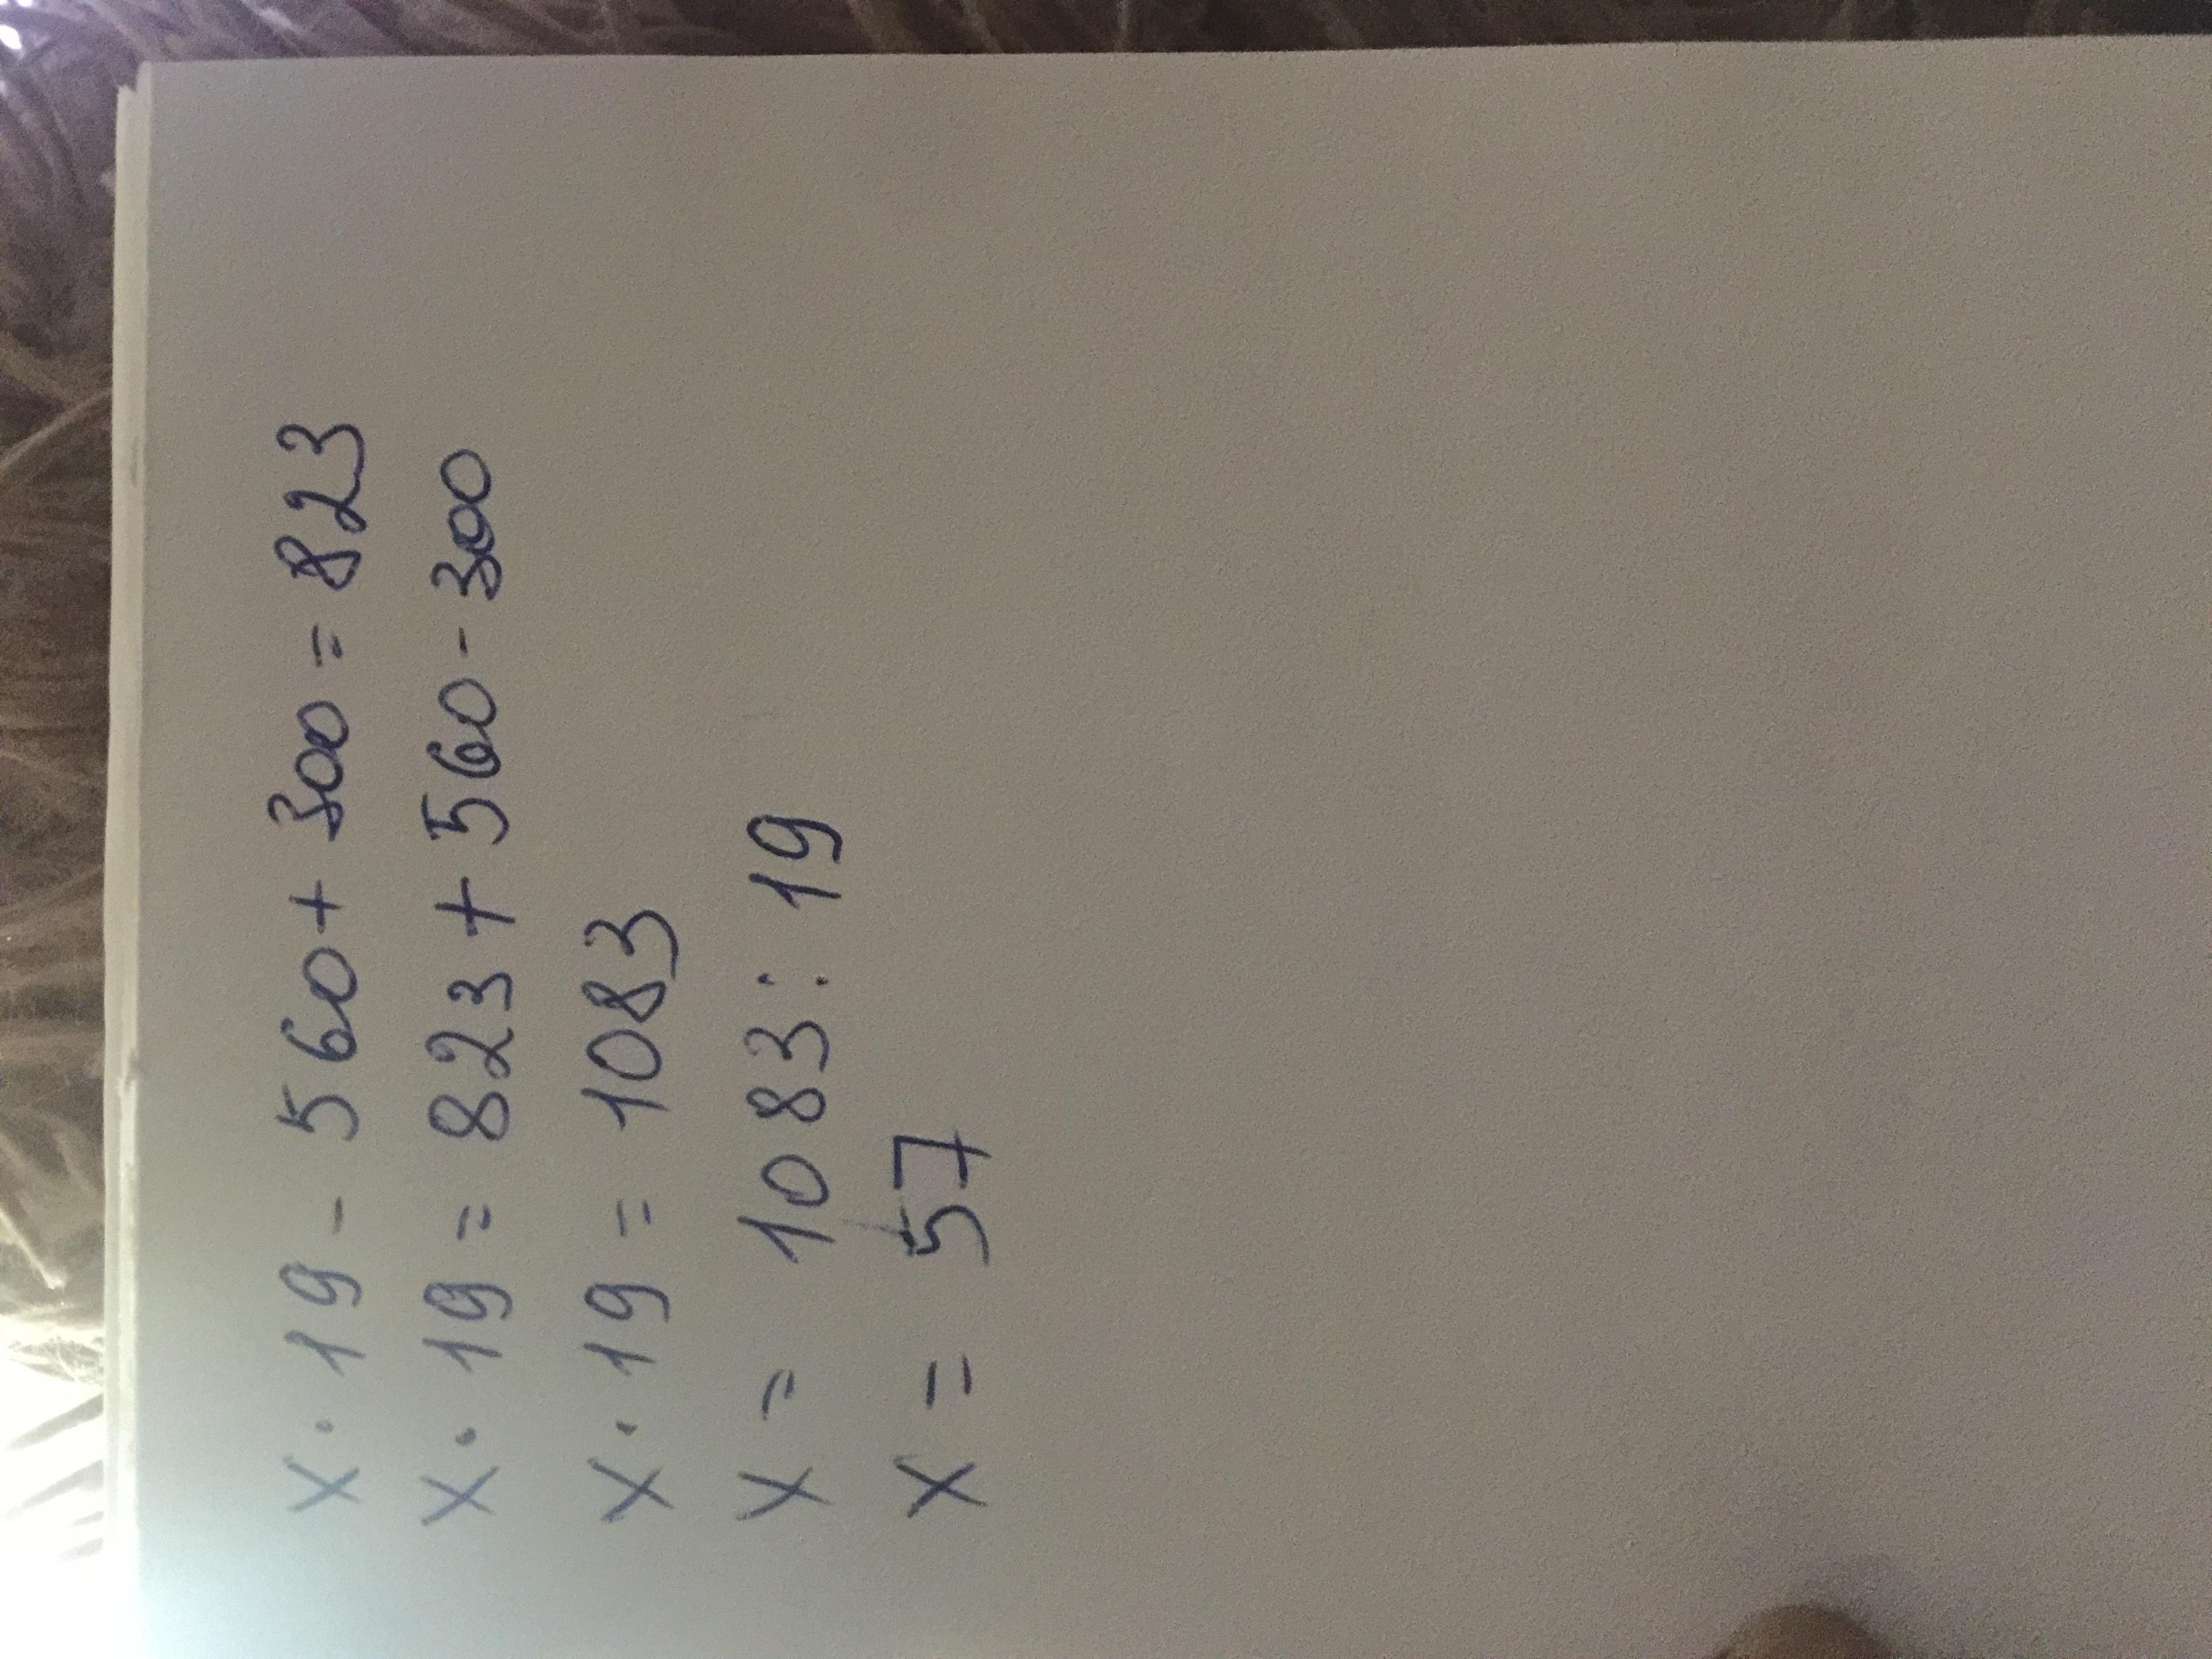 x · 19 - 560 + 300 = 823
x · 19 = 823 + 560 - 300
x · 19 = 1083
x = 1083 : 19
x = 57